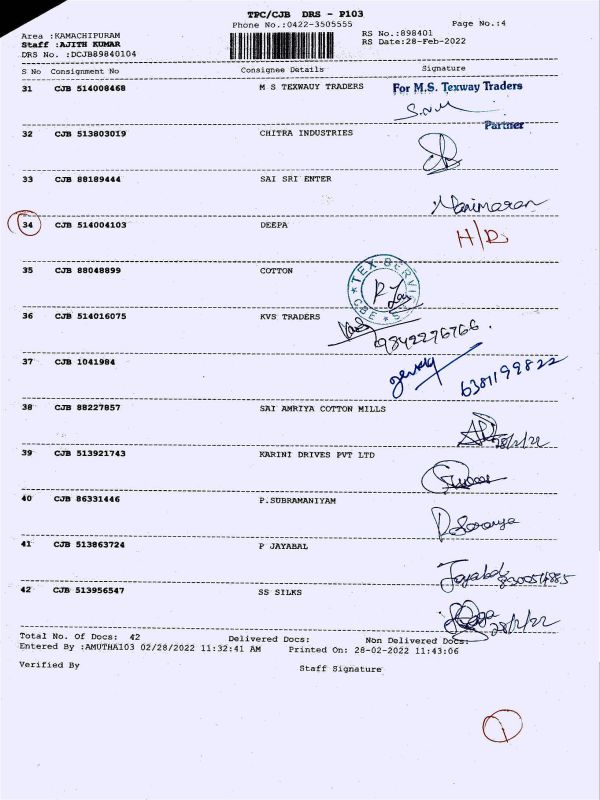 TPC/CJB DRS - P103
Phone No.:0422-3505555
Page No.:4
Area :KAMACHIPURAM
RS No.:898401
Staff :AJITH KUMAR
RS Date:28-Feb-2022
DRS No. :DCJB89840104
S No Consignment No Consignee Details Signature
31 CJB 514008468 M S TEXWAUY TRADERS For M.S. Texway Traders
Partner
32 CJB 513803019 CHITRA INDUSTRIES
33 CJB 88189444 SAI SRI ENTER
Manimaran
34 CJB 514004103 DEEPA
H/D
35 CJB 88048899 COTTON
TEX SERVI
CBE
36 CJB 514016075 KVS TRADERS
9842276766.
37 CJB 1041984
6381199822
38 CJB 88227857 SAI AMRIYA COTTON MILLS
28/2/22
39 CJB 513921743 KARINI DRIVES PVT LTD
40 CJB 86331446 P.SUBRAMANIYAM
P.Saranya
41 CJB 513863724 P JAYABAL
42 CJB 513956547 SS SILKS
28/2/22
Total No. Of Docs: 42 Delivered Docs: Non Delivered Docs:
Entered By :AMUTHA103 02/28/2022 11:32:41 AM Printed On: 28-02-2022 11:43:06
Verified By Staff Signature
1